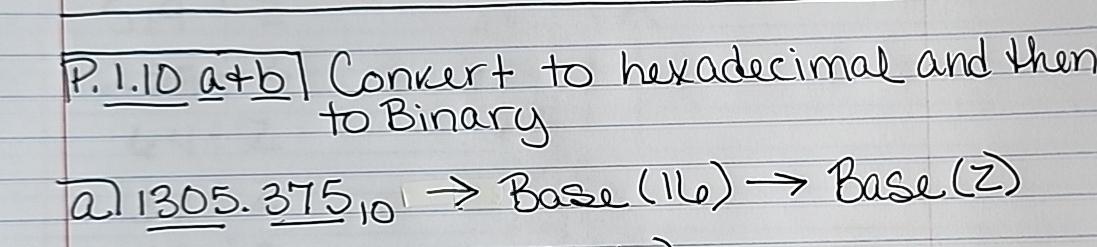 P. 1.10 a+b Convert to hexadecimal and then
to Binary
a) 1305.375₁₀ → Base (16) → Base (2)